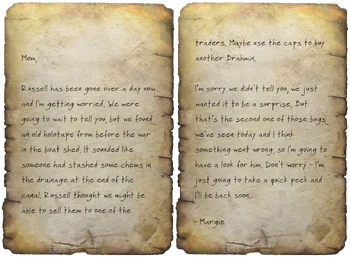 Mom,
Russell has been gone over a day now
and I'm getting worried. We were
going to wait to tell you, but we found
an old holotape from before the war
in the boat shed. It sounded like
someone had stashed some chems in
the drainage at the end of the
canal. Russell thought we might be
able to sell them to one of the
traders. Maybe use the caps to buy
another Brahmin.
I'm sorry we didn't tell you, we just
wanted it to be a surprise. But
that's the second one of those bugs
we've seen today and I think
something went wrong, so I'm going to
have a look for him. Don't worry - I'm
just going to take a quick peek and
I'll be back soon.
- Margie